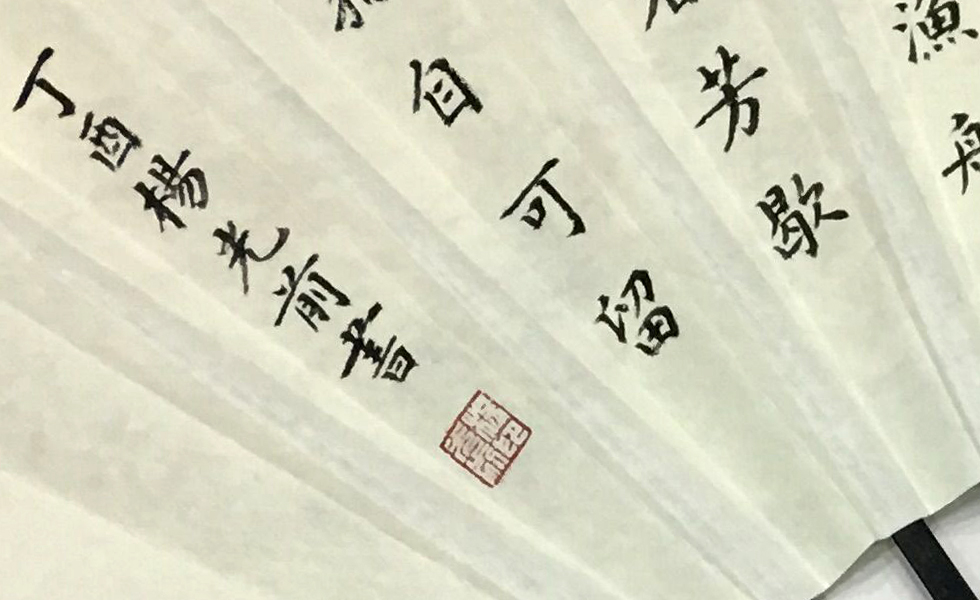 漁舟
芳歇
自可留
丁酉楊光前書